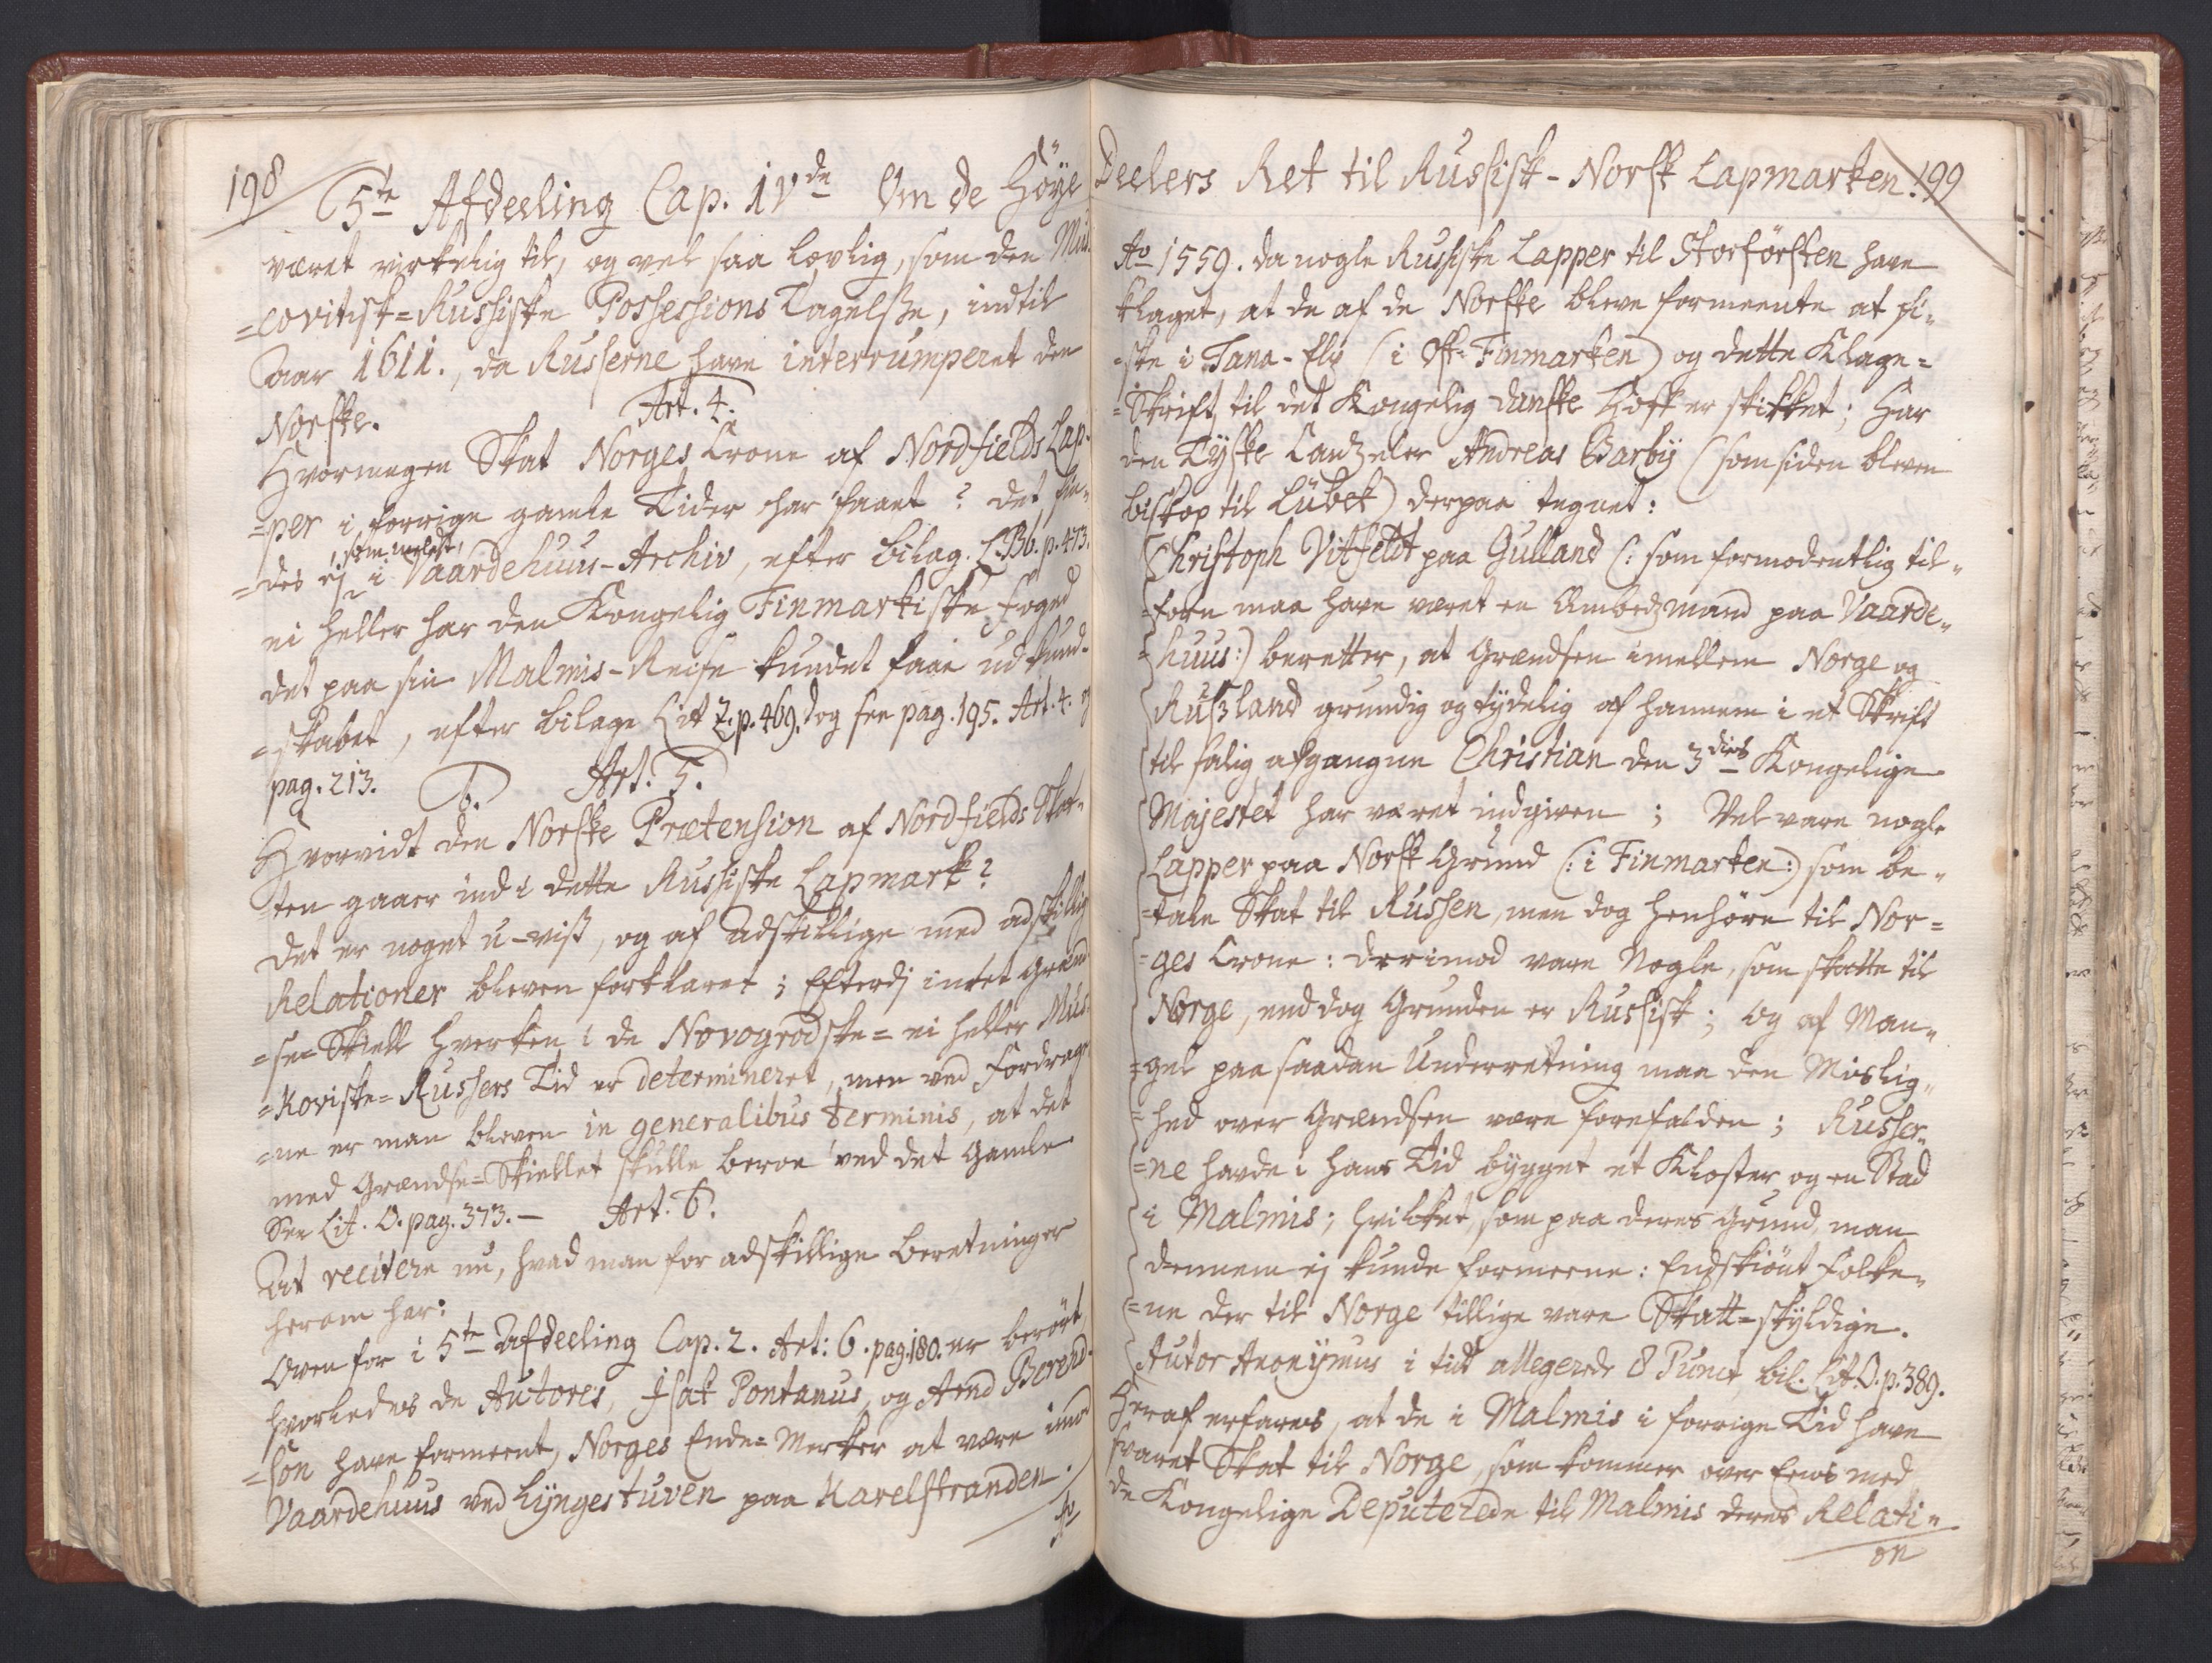 198
5te Afdeeling Cap. IVde Om de Höye
været virkelig til, og vel saa lovlig, som den Mus-
=covitisk=Russiske Possessions Tagelsse, indtil
Aar 1611., da Russerne have interrumperet den
Norske.
Art. 4.
Hvormegen Skat Norges Crone af Nordfields Lap-
=per i forrige gamle Tider har faaet? det fin-
, som meldt,
=des ej i Vaardehuus-Archiv, efter bilag. L. Bb. p. 473.
ei heller har den Kongelig Finmarkiske Foged
det paa sin Malmis-Reise kundet faae ud kund-
=skabet, efter bilage Lit Z. p. 469. dog see pag. 195. Art. 4. og
pag. 213.
Art. 5.
Hvorvidt den Norske Prætension af Nordfields Skat-
ten gaaer ind i dette Russiske Lapmark?
Det er noget u-vist, og af adskillige med adskillig
Relationer bleven forklaret; Efterdj intet Grænd-
=se=Skiell hverken i de Novogrodske= ei heller Mus-
=koviske=Russers Tid er determineret, men ved Fordrage-
=ne er man bleven in generalibus terminis, at det
med Grændse=Skiellet skulle beroe ved det Gamle
See Lit. O. pag. 373. —
Art. 6.
At recitere nu, hvad man for adskillige beretninger
herom har:
Oven for i 5te Afdeeling Cap. 2. Art: 6. pag. 180. er berört
hvorledes de Autores, Isak Pontanus, og Arnd Berend-
=sön have formeent, Norges Ende=Merker at være imod
Vaardehuus ved Lyngestuven paa Karelstranden.
Ao
Deelers Ret til Russisk-Norsk Lapmarken. 199
Ao 1559. da nogle Russiske Lapper til Storförsten have
klaget, at de af de Norske bleve formeente at fi-
=ske i Tana-Elv (i Ost-Finmarken) og dette Klage=
=Skrift til det Kongelig danske Hoff er skikket; Har
den Tyske Cantzeler Andreas Barby (som siden bleven
biskop til Lübek) derpaa tegnet:
Christoph Vitfeldt paa Gulland (: som formodentlig til-
=forn maa have været en Ambedzmand paa Vaarde-
=huus:) beretter, at Grændsen imellem Norge og
Russland grundig og tydelig af hannem i et Skrift
til salig afgangne Christian den 3dies Kongelige
Majestet har været indgiven; Vel vare nogle
Lapper paa Norsk Grund (: i Finmarken:) som be-
=tale Skat til Russen, men dog henhöre til Nor=
=ges Crone: derimod vare Nogle, som skatte til
Norge, end dog Grunden er Russisk; og af Man-
=gel paa saadan Underretning maa den Mislig-
=hed over Grændsen være forefalden; Russer-
=ne havde i hans Tid bygget et Kloster og en Stad
i Malmis; hvilket, som paa deres Grund, man
dennem ej kunde formeene: Endskiönt Folke-
=ne der til Norge tillige vare Skatt=skyldige.
Autor Anonymus i tidt allegerede 8 Punct, bil. Lit. O. p. 389.
Heraf erfares, at de i Malmis i forrige Tid have
svaret Skat til Norge, som kommer over Eens med
de Kongelige Deputerede til Malmis deres Relati-
on